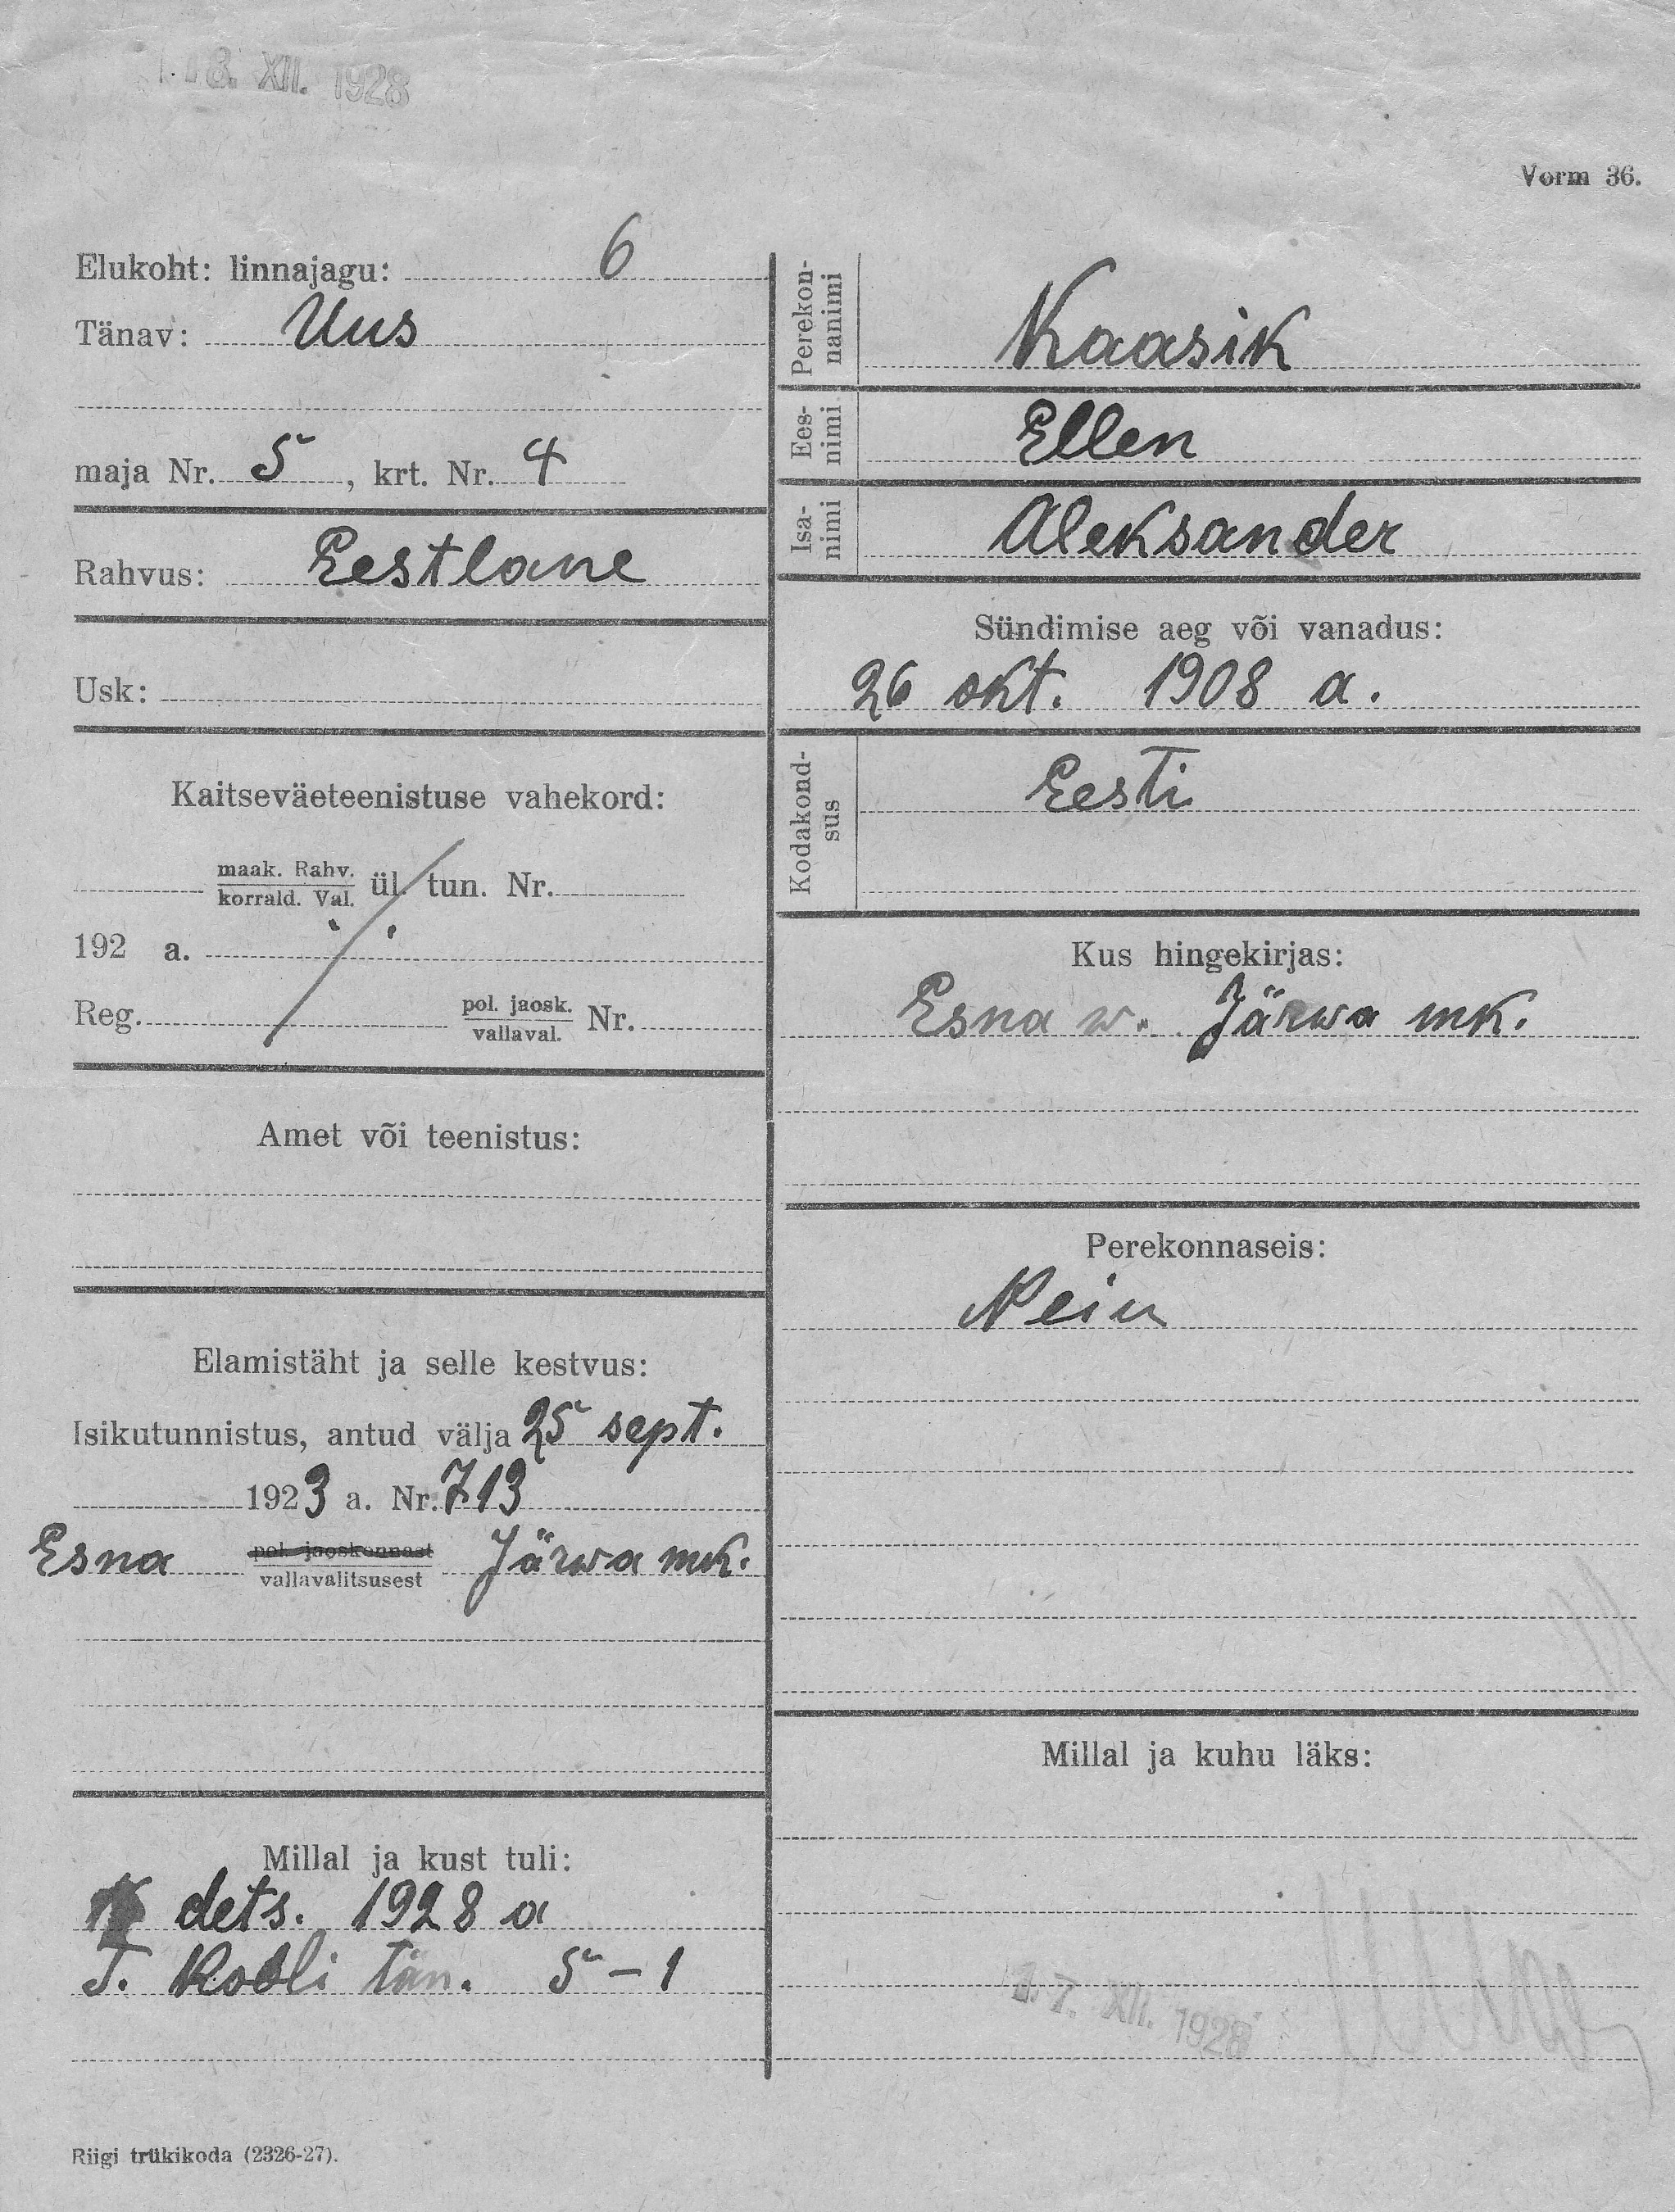 8. XII. 1928
Vorm 36.
Elukoht: linnajagu: 6
Tänav: Uus
maja Nr. 5, krt. Nr. 4
Rahvus: Eestlane
Usk:
Kaitseväeteenistuse vahekord:
maak. Rahv.
korrald. Val. ül. tun. Nr.
192 a.
Reg. pol. jaosk.
vallaval. Nr.
Amet või teenistus:
Elamistäht ja selle kestvus:
Isikutunnistus, antud välja 25 sept.
1923 a. Nr. 713
Esna pol. jaoskonnast Järwa mk.
vallavalitsusest
Millal ja kust tuli:
dets. 1928 a
T. Kobli tän. 5-1
Perekon-
nanimi
Kaasik
Ees-
nimi
Ellen
Isa-
nimi
Aleksander
Sündimise aeg või vanadus:
26 okt. 1908 a.
Kodakond-
sus
Eesti
Kus hingekirjas:
Esna w. Järwa mk.
Perekonnaseis:
Neiu
Millal ja kuhu läks:
17. XII. 1928
Riigi trükikoda (2326-27).